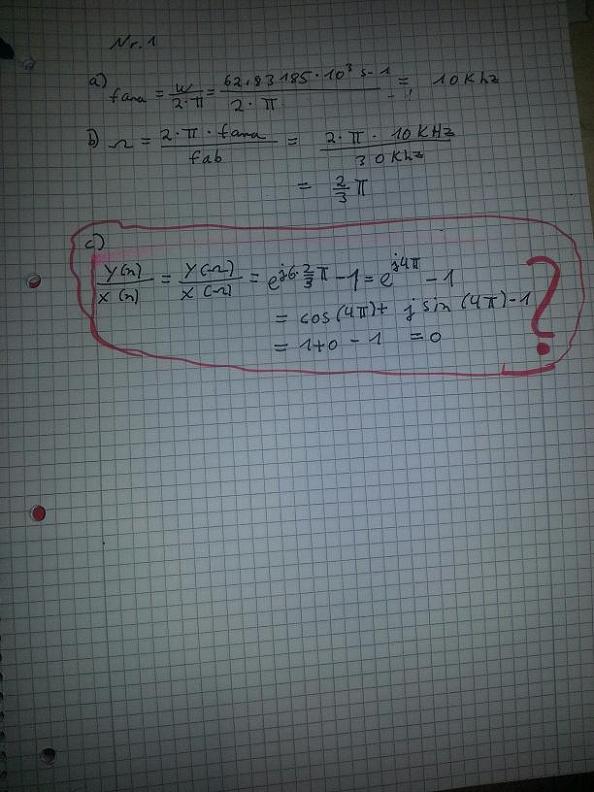 Nr. 1
a) fana = w/2·π = 62,83185·10³ s-1 / 2·π = 10 Khz
b) Ω = 2·π·fana / fab = 2·π·10 KHz / 30 Khz
= 2/3 π
c)
Y(n)/X(n) = Y(Ω)/X(Ω) = e^j6·2/3π - 1 = e^j4π - 1
= cos(4π) + j sin(4π) - 1
= 1+0 - 1 = 0
?